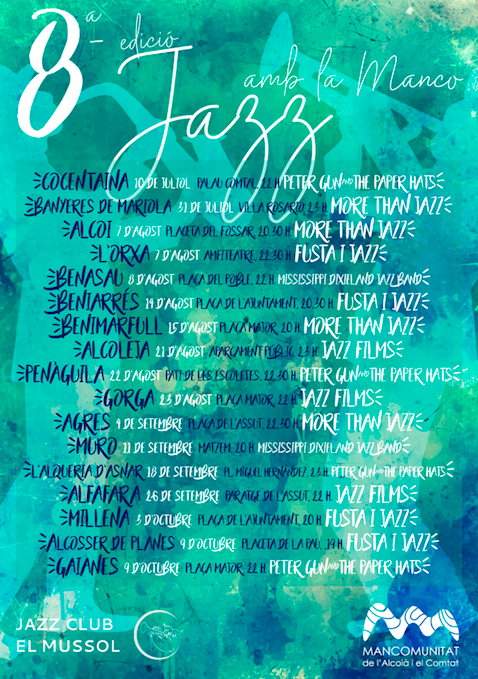 8ª edició
Jazz
amb la Manco
COCENTAINA 10 DE JULIOL PALAU COMTAL, 22 H PETER GUN AND THE PAPER HATS
BANYERES DE MARIOLA 31 DE JULIOL VILLA ROSARIO, 23 H MORE THAN JAZZ
ALCOI 7 D'AGOST PLACETA DEL FOSSAR, 20.30 H MORE THAN JAZZ
L'ORXA 7 D'AGOST AMFITEATRE, 22.30 H FUSTA I JAZZ
BENASAU 8 D'AGOST PLAÇA DEL POBLE, 22 H MISSISSIPPI DIXIELAND JAZZ BAND
BENIARRÉS 14 D'AGOST PLAÇA DE L'AJUNTAMENT, 20.30 H FUSTA I JAZZ
BENIMARFULL 15 D'AGOST PLAÇA MAJOR, 20 H MORE THAN JAZZ
ALCOLEJA 21 D'AGOST APARCAMENT PÚBLIC, 23 H JAZZ FILMS
PENÀGUILA 22 D'AGOST PATI DE LES ESCOLETES, 22.30 H PETER GUN AND THE PAPER HATS
GORGA 23 D'AGOST PLAÇA MAJOR, 22 H JAZZ FILMS
AGRES 4 DE SETEMBRE PLAÇA DE L'ASSUT, 22.30 H MORE THAN JAZZ
MURO 11 DE SETEMBRE MATZEM, 20 H MISSISSIPPI DIXIELAND JAZZ BAND
L'ALQUERIA D'ASNAR 18 DE SETEMBRE PL. MIGUEL HERNÁNDEZ, 23 H PETER GUN AND THE PAPER HATS
ALFAFARA 26 DE SETEMBRE PARATGE DE L'ASSUT, 22 H JAZZ FILMS
MILLENA 3 D'OCTUBRE PLAÇA DE L'AJUNTAMENT, 20 H FUSTA I JAZZ
ALCOSSER DE PLANES 9 D'OCTUBRE PLACETA DE LA PAU, 19 H FUSTA I JAZZ
GAIANES 9 D'OCTUBRE PLAÇA MAJOR, 22 H PETER GUN AND THE PAPER HATS
JAZZ CLUB
EL MUSSOL
MANCOMUNITAT
de l'Alcoià i el Comtat